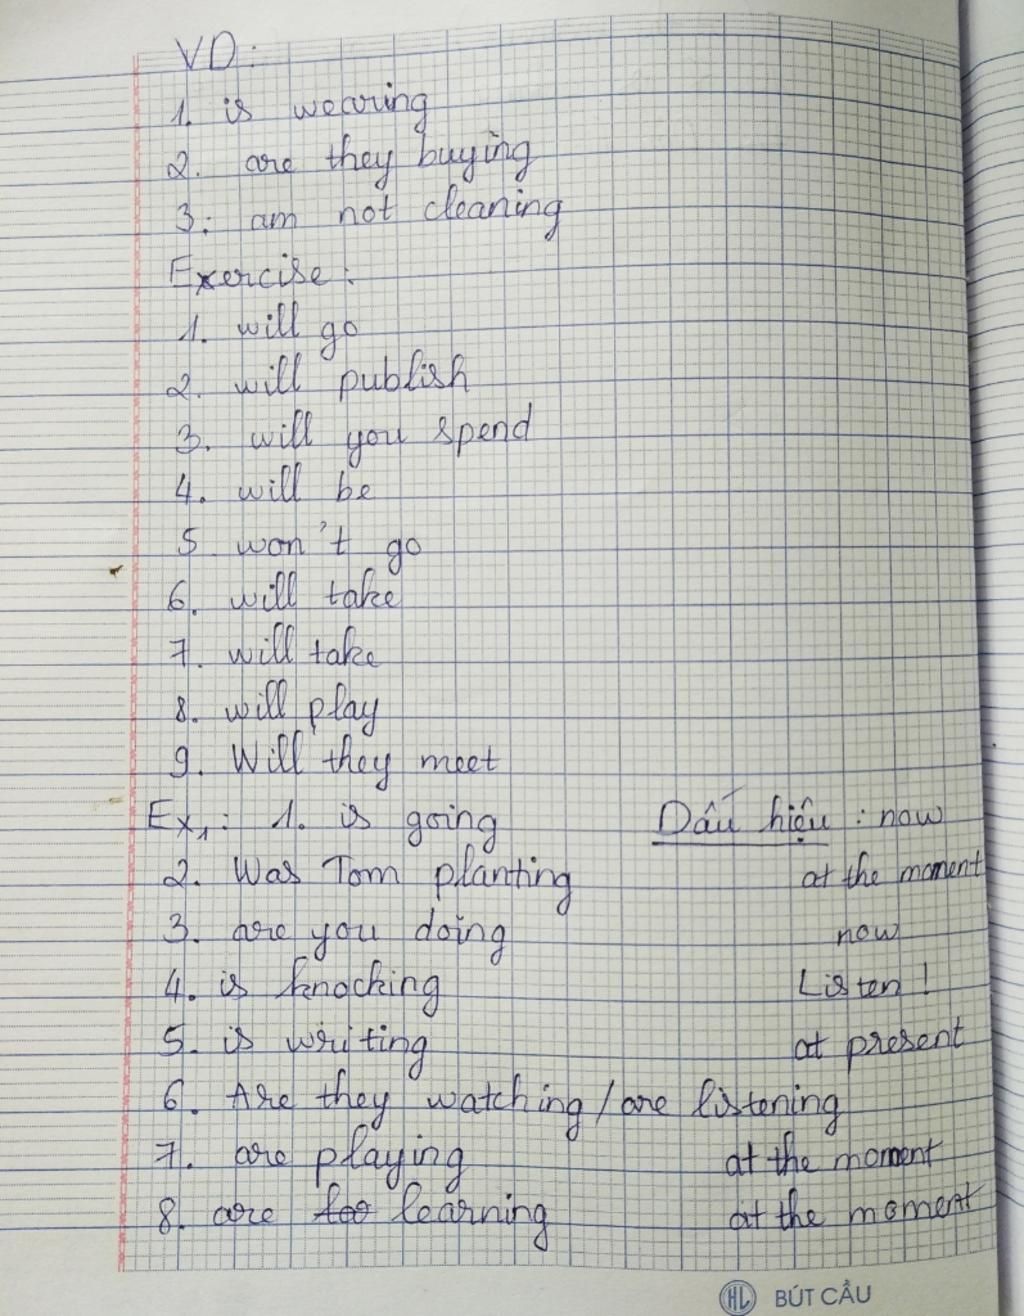 VD:
1. is wearing
2. are they buying
3. am not cleaning
Exercise:
1. will go
2. will publish
3. will you spend
4. will be
5 won't go
6. will take
7. will take
8. will play
9. Will they meet
Ex1: 1. is going Dấu hiệu: now
2. Was Tom planting at the moment
3. are you doing now
4. is knocking Listen!
5. is writing at present
6. Are they watching / are listening
7. are playing at the moment
8. are learning at the moment
HL BÚT CẦU